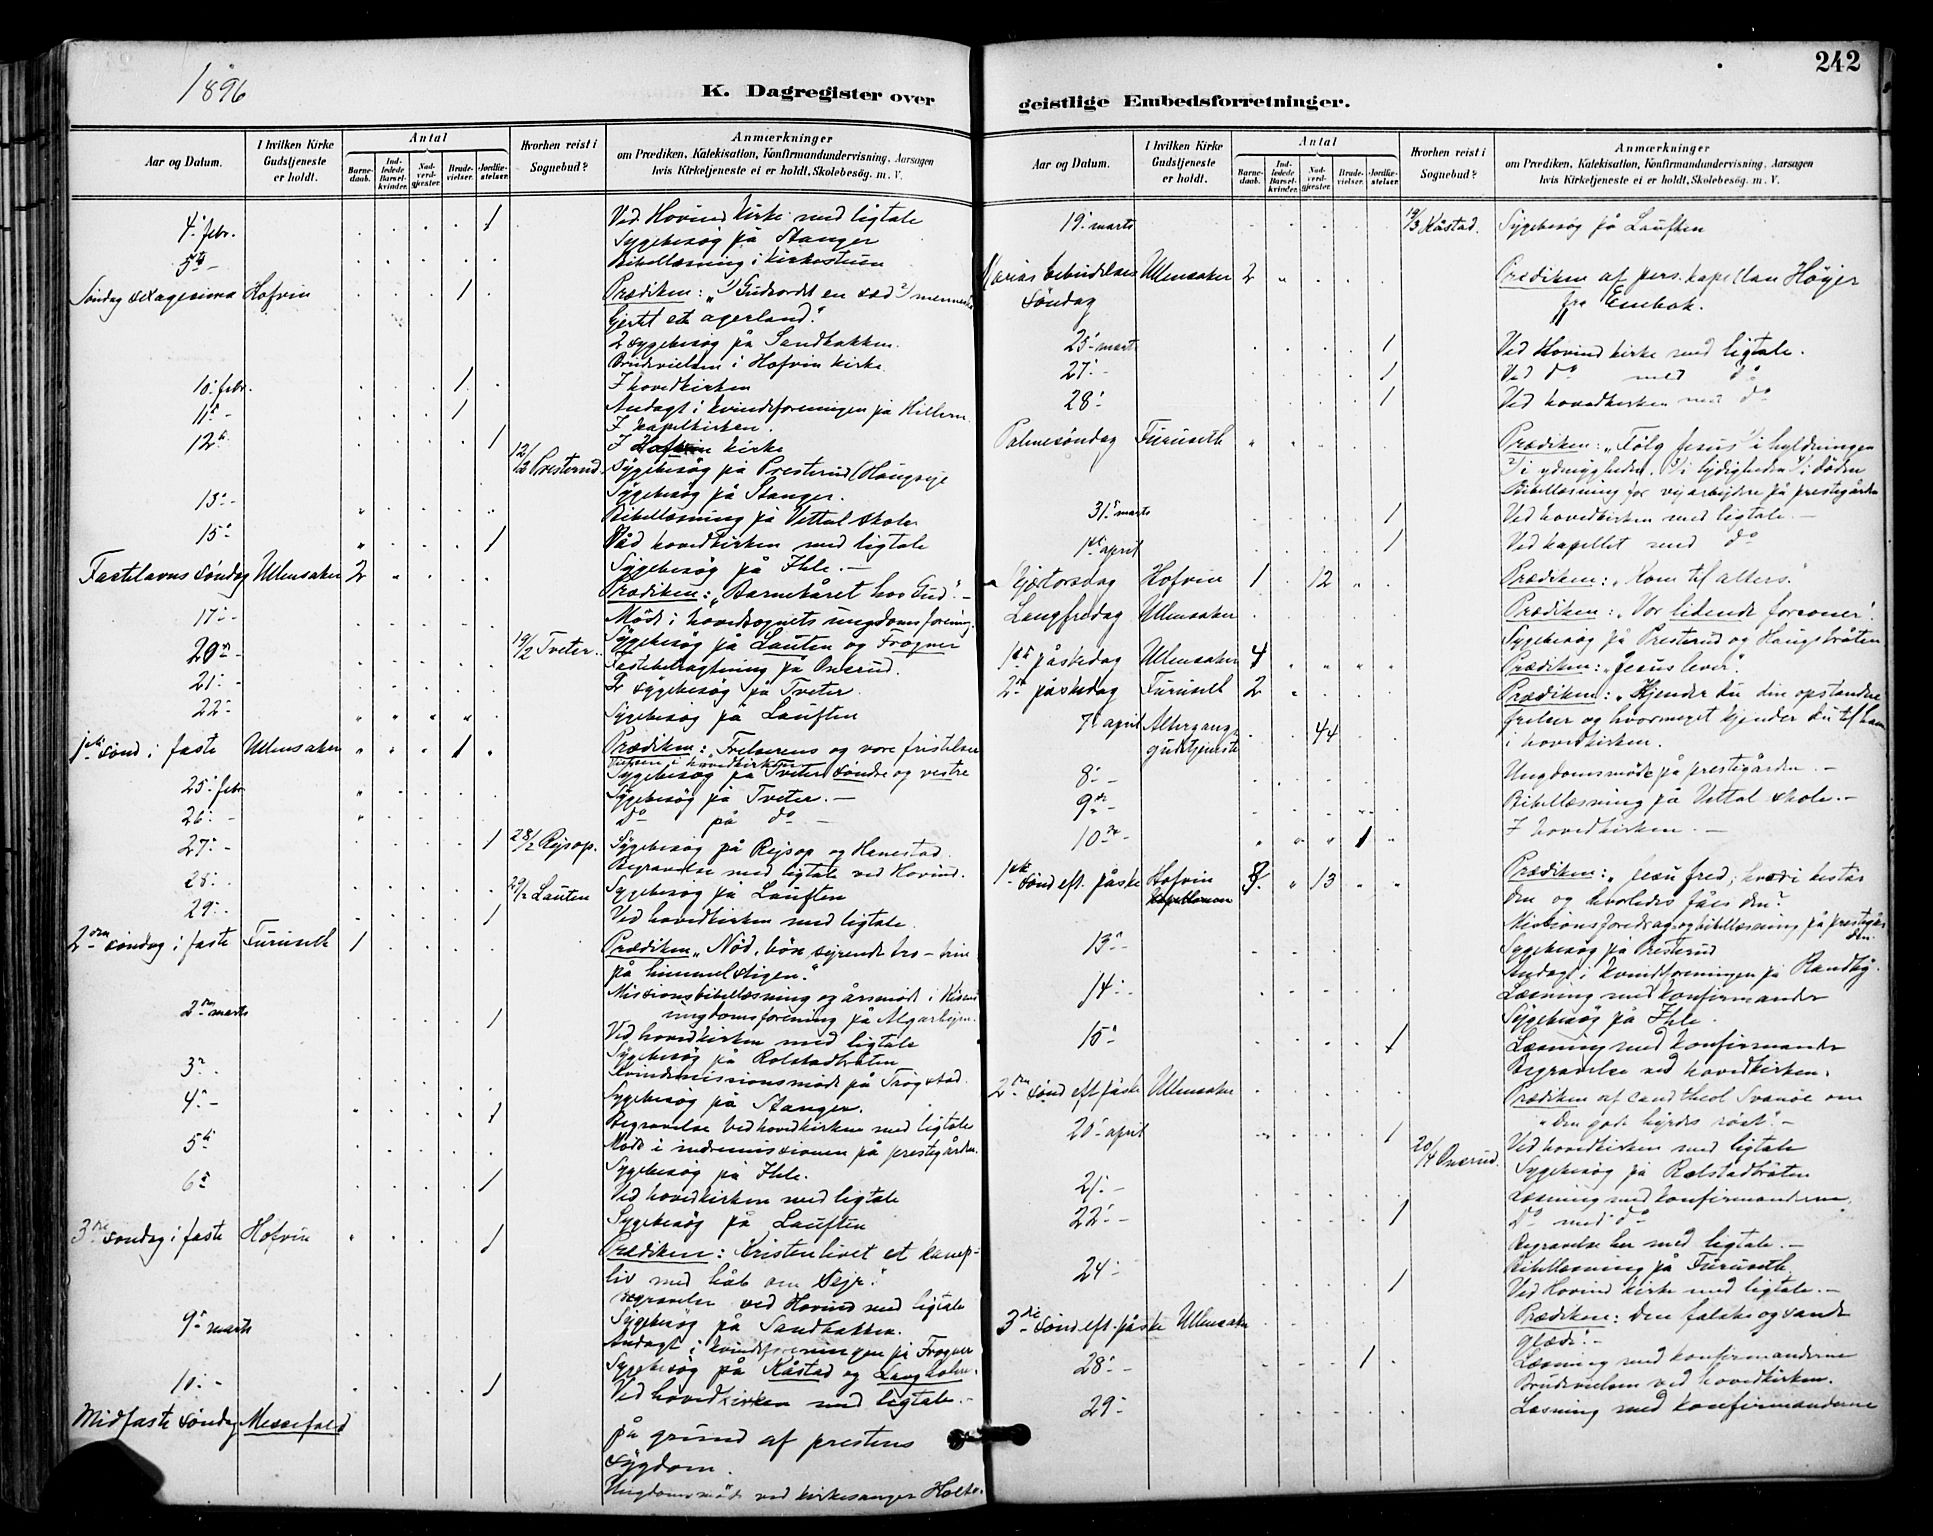 1896
K. Dagregister over
Aar og Datum.
I hvilken Kirke Gudstjeneste er holdt.
Antal
Barnedaab.
Indledede Barselkvinder.
Nadverdgjester
Brudevielser.
Jordfæstelser.
Hvorhen reist i Sognebud?
Anmærkninger
om Prædiken, Katekisation, Konfirmandundervisning, Aarsagen
hvis Kirketjeneste ei er holdt, Skolebesøg. m. V.
4. febr. 1 Ved Hovind kirke med ligtale
Sygebesøg på Stanger
5te - Bibellæsning i kirkestuen
Søndag sexagesima Hofvin 1 Prædiken: „1/ Gudsordet en sæd 2/ menneske
hjertet et agerland."
2 sygebesøg på Sandbakken.
Brudevielsen i Hofvin kirke.
10. febr. 1 I hovedkirken
11 - 1 Andagt i kvindeforeningen på Hilleren
I kapelkirken.
12 1 I Hofvin kirke
12/2 Presterud Sygebesøg på Presterud (Haugseje
Sygebesøg på Stanger.
13 - Bibellæsning på Vettal skole
15 1 Ved hovedkirken med ligtale
Sygebesøg på Ihle. -
Fastelavns søndag Ullensaker 2 Prædiken: „Barnekåret hos Gud". -
17 - Møde i hovedsognets ungdomsforening.
20 - 19/2 Tveter. Sygebesøg på Lauten og Frogner
Fastebetragtning på Onsrud.
21. - 2 sygebesøg på Tveter.
22 - Sygebesøg på Lauften
1ste sønd i faste Ullensaker 1 Prædiken: „Frelserens og vore fristelser
Vielsen i hovedkirken
Sygebesøg på Tveter søndre og vestre
25. febr Sygebesøg på Tveter. -
26. - do på do -
27. - 1 28/2 Rejsop. Sygebesøg på Rejsop og Henestad.
Begravelse med ligtale ved Hovind.
28. - 29/2 Lauten Sygebesøg på Lauften
29. - 1 Ved hovedkirken med ligtale.
2den søndag i faste Furuseth 1 Prædiken „Nød, bøn, sejrende tro - trin
på himmelstigen."
Missionsbibellæsning og årsmøde i
2den marts 1 ungdomsforening på Algarhejm.
Ved hovedkirken med ligtale
Sygebesøg på Rolstadbråten
3 - Kvindemissionsmøde på Trøgstad.
Sygebesøg på Stanger.
4 - 1 Begravelse ved hovedkirken med ligtale
5te Møde i indremissionen på prestegården.
Sygebesøg på Ihle.
6 1 Ved hovedkirken med ligtale
Sygebesøg på Lauften
3die søndag i faste Hofvin 1 Prædiken: Kristenlivet et kamp-
liv med håb om Sejr."
Begravelse ved Hovind med ligtale
9 marts Sygebesøg på Sandbakken.
Andagt i kvindeforeningen på Frogner
Sygebesøg på Kåstad og Langholen.
10. - 1 Ved hovedkirken med ligtale. -
Midfaste søndag Messefald på grund af prestens
sygdom.
Ungdomsmøde ved kirkesanger Holte.
242
geistlige Embedsforretninger.
Aar og Datum.
I hvilken Kirke Gudstjeneste er holdt.
Antal
Barnedaab.
Indledede Barselkvinder.
Nadverdgjester.
Brudevielser.
Jordfæstelser.
Hvorhen reist i Sognebud?
Anmærkninger
om Prædiken, Katekisation, Konfirmandundervisning, Aarsagen
hvis Kirketjeneste ei er holdt, Skolebesøg. m. V.
19. marts 19/3 Kåstad. Sygebesøg på Lauften
Marias bebudelses Ullensaker 2 Prædiken af pers. kapellan Höyer
søndag fra Enebak.
25 marts 1 Ved Hovind kirke med ligtale.
27. - 1 Ved do med do
28. 1 Ved hovedkirken med do
Palmesøndag Furuseth Prædiken: „Følg Jesus 1/ i hyldningen
2/ i ydmygheden, 3/ i lydigheden 4/ i døden
Bibellæsning for vejarbejdere på prestegården
31. marts 1 Ved hovedkirken med ligtale. -
1ste april 1 Ved kapellet med do
Skjærtorsdag Hofvin 1 12 Prædiken: „Kom til alters."
Langfredag Ullensaker Prædiken: „Vor lidende forsoner!
Sygebesøg på Presterud og Haugsbråten
1ste påskedag Ullensaker 4 Prædiken: „Jesus lever".
2den påskedag Furuseth 2 Prædiken: „Kjender du din opstandne
7. april Altergangs- 44 frelser og hvormeget kjender du til ham
gudstjeneste i hovedkirken.
8. - Ungdomsmøde på prestegården. -
9de - Bibellæsning på Vettal skole. -
10de - 1 I hovedkirken. -
1ste sønd eft. påske Hofvin 3 13 Prædiken: „Jesu fred, hvori består
den og hvorledes fåes den?
Missionsforedrag og bibellæsning på prestegår-
den.
13 - Sygebesøg på Presterud
Andagt i kvindeforeningen på Randby.
14. - Læsning med konfirmander
Sygebesøg på Ihle.
15. 1 Læsning med konfirmander
Begravelse ved hovedkirken.
2den sønd eft påske Ullensaker Prædiken af cand theol Svanøe om
„Den gode hyrdes røst". -
20. april 1 Ved hovedkirken med ligtale
20/4 Onsrud. Sygebesøg på Rolstadbråten
21. - Læsning med konfirmanderne
22. - 1 do med do
Begravelse her med ligtale. -
24. - Bibellæsning på Furuseth.
1 Ved Hovind kirke med ligtale. -
3die sønd eft. påske Ullensaker Prædiken: Den falske og sande
glæde. -
28. - 1 Læsning med konfirmanderne
Brudevielsen ved hovedkirken.
29. Læsning med konfirmanderne